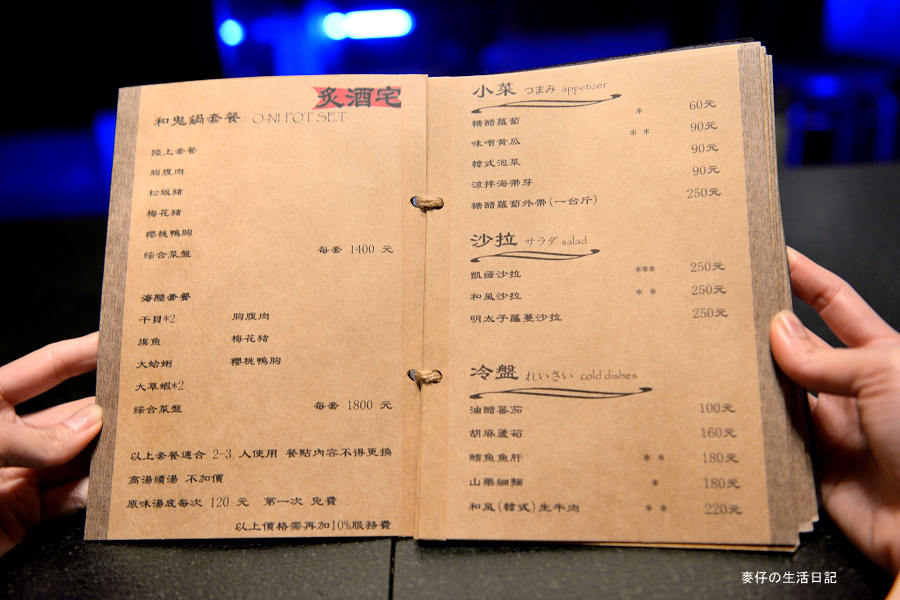 炙酒宅
和鬼鍋套餐 O-NI POT SET
陸上套餐
胸腹肉
松坂豬
梅花豬
櫻桃鴨胸
綜合菜盤 每套 1400 元
海陸套餐
干貝*2 胸腹肉
旗魚 梅花豬
大蛤蜊 櫻桃鴨胸
大草蝦*2
綜合菜盤 每套 1800 元
以上套餐適合 2-3 人使用 餐點內容不得更換
高湯續湯 不加價
原味湯底每次 120 元 第一次 免費
以上價格需再加10%服務費
小菜 つまみ appetizer
糖醋蘿蔔 * 60元
味噌黃瓜 * * 90元
韓式泡菜 90元
涼拌海帶芽 90元
糖醋蘿蔔外帶(一台斤) 250元
沙拉 サラダ salad
凱薩沙拉 *** 250元
和風沙拉 * * 250元
明太子蘿蔓沙拉 250元
冷盤 れいさい cold dishes
油醋蕃茄 100元
胡麻蘆筍 160元
鱈魚魚肝 * * 180元
山藥細麵 * 180元
和風(韓式)生牛肉 * * 220元
麥仔の生活日記